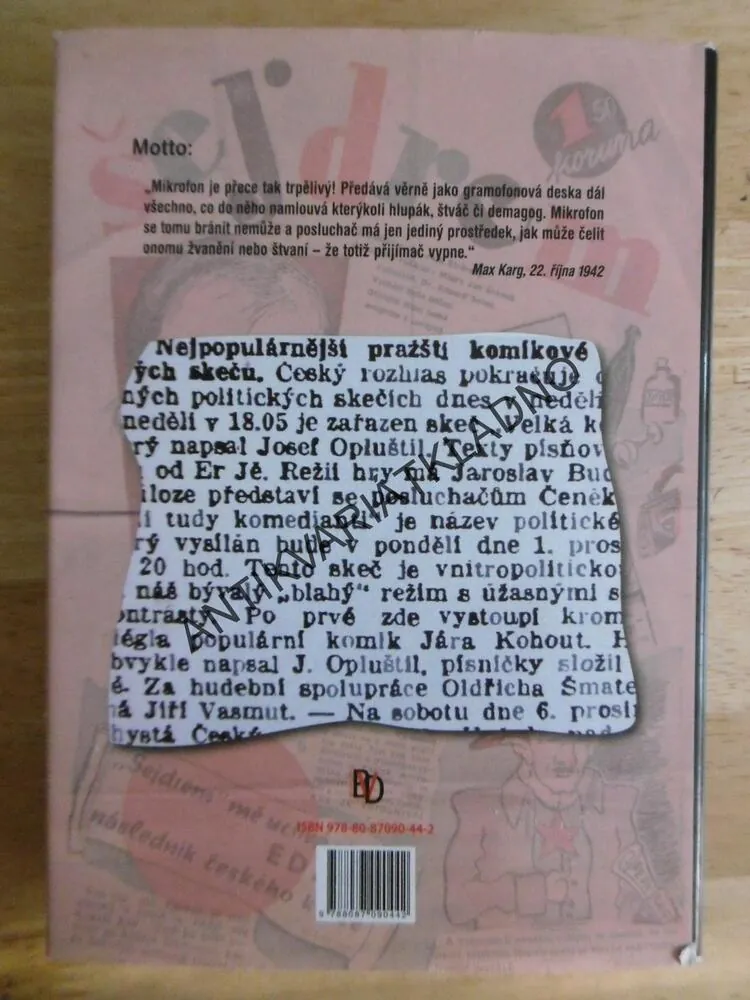 šejdrem
1 50
koruna
Motto:
„Mikrofon je přece tak trpělivý! Předává věrně jako gramofonová deska dál
všechno, co do něho namlouvá kterýkoli hlupák, štváč či demagog. Mikrofon
se tomu bránit nemůže a posluchač má jen jediný prostředek, jak může čelit
onomu žvanění nebo štvaní – že totiž přijímač vypne."
Max Karg, 22. října 1942
Nejpopulárnější pražští komikové
ých skečů. Český rozhlas pokračuje
ných politických skečích dnes v neděli
neděli v 18.05 je zařazen skeč „Velká
rý napsal Josef Opluštil. Texty písňov
od Er Jé. Režii hry má Jaroslav Bud
úloze představí se posluchačům Čeněk
i tudy komedianti" je název politické
rý vysílán bude v pondělí dne 1. pros
20 hod. Tento skeč je vnitropoliticko
náš bývalý „blahý" režim s úžasnými s
ontrasty. Po prvé zde vystoupí krom
légla populární komik Jára Kohout.
bvykle napsal J. Opluštil, písničky složil
é. Za hudební spolupráce Oldřicha Šmate
á Jiří Vasmut. — Na sobotu dne 6. prosi
hystá Český
ANTIKVARIATKLADNO
„Šejdrem" mé
následník českého
BVD
ISBN 978-80-87090-44-2
9 788087 090442